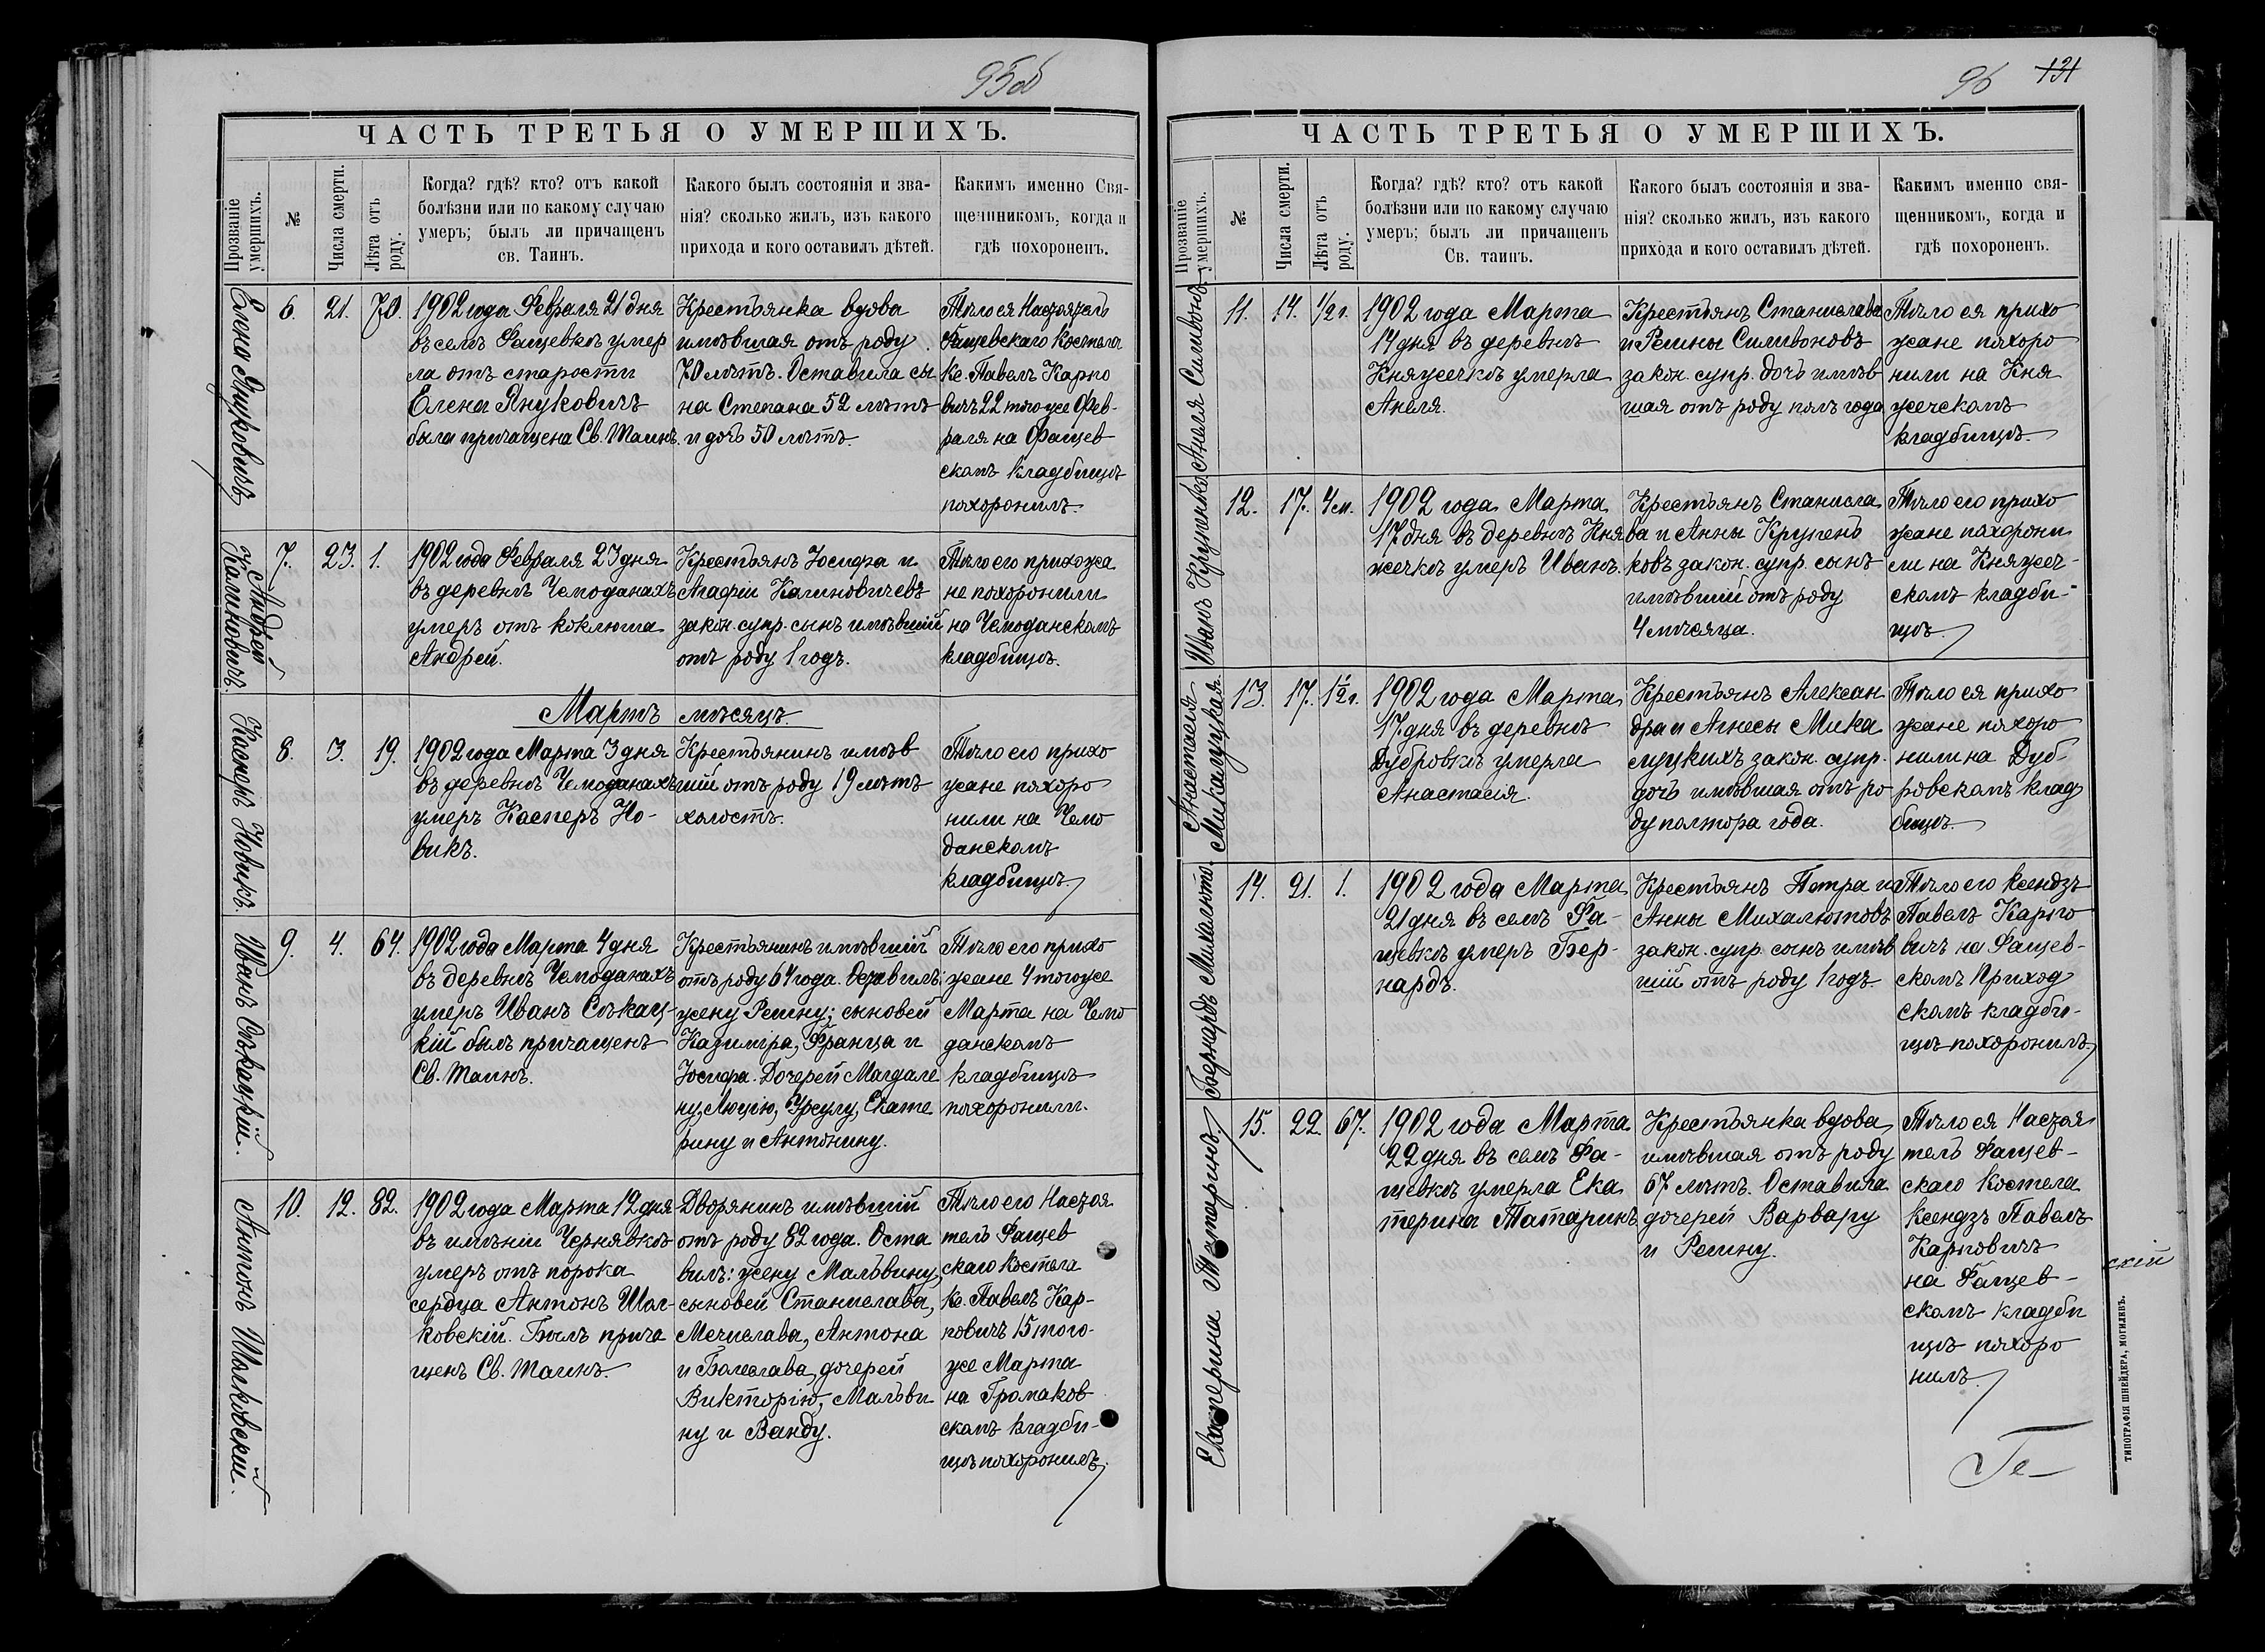 95об
ЧАСТЬ ТРЕТЬЯ О УМЕРШИХЪ.
Прозваніе умершихъ.
№
Числа смерти.
Лѣта отъ роду.
Когда? гдѣ? кто? отъ какой
болѣзни или по какому случаю
умеръ; былъ ли причащенъ
св. Таинъ.
Какого былъ состоянія и зва-
нія? сколько жилъ, изъ какого
прихода и кого оставилъ дѣтей.
Какимъ именно Свя-
щенникомъ, когда и
гдѣ похороненъ.
Елена Януковичъ
6.
21.
70.
1902 года Февраля 21 дня
въ селѣ Фащевкѣ умер
ла отъ старости
Елена Януковичъ
была причащена Св. Таинъ.
Крестьянка вдова
имѣвшая отъ роду
70 лѣтъ. Оставила сы
на Степана 52 лѣтъ
и дочь 50 лѣтъ.
Тѣло ея Настоятель
Фащевскаго Костела
Кс. Павелъ Карпо
вичъ 22 того же Фев-
раля на Фащев
скомъ кладбищѣ
похоронилъ.
Андрей
Калиновичъ.
7.
23.
1.
1902 года Февраля 23 дня
въ деревнѣ Чемоданахъ
умеръ отъ коклюша
Андрей.
Крестьянъ Іосифа и
Агафіи Калиновичевъ
закон. супр. сынъ имѣвшій
отъ роду 1 годъ.
Тѣло его прихожа
не похоронили
на Чемоданскомъ
кладбищѣ.
Мартъ мѣсяцъ.
Касперъ Новикъ.
8.
3.
19.
1902 года Марта 3 дня
въ деревнѣ Чемоданахъ
умеръ Касперъ Но-
викъ.
Крестьянинъ имѣв
шій отъ роду 19 лѣтъ
холостъ.
Тѣло его прихо
жане похоро
нили на Чемо
данскомъ
кладбищѣ.
Иванъ Сѣкацкій.
9.
4.
64.
1902 года Марта 4 дня
въ деревнѣ Чемоданахъ
умеръ Иванъ Сѣкац-
кій былъ причащенъ
Св. Таинъ.
Крестьянинъ имѣвшій
отъ роду 64 года. Оставилъ:
жену Регину; сыновей
Казиміра, Франца и
Іосифа. Дочерей Магдале
ну, Люцію, Урсулу, Екате
рину и Антонину.
Тѣло его прихо
жане 4 того же
Марта на Чемо
данскомъ
кладбищѣ
похоронили.
Антонъ Шалковскій.
10.
12.
82.
1902 года Марта 12 дня
въ имѣніи Чернявкѣ
умеръ отъ порока
сердца Антонъ Шал-
ковскій. Былъ прича
щенъ Св. Таинъ.
Дворянинъ имѣвшій
отъ роду 82 года. Оста
вилъ: жену Мальвину,
сыновей Станислава,
Мечислава, Антона
и Болеслава, дочерей
Викторію, Мальви
ну и Ванду.
Тѣло его Настоя
тель Фащев
скаго Костела
Кс. Павелъ Кар-
повичъ 15 того-
же Марта
на Громаков
скомъ кладби-
щѣ похоронилъ.
96 131
ЧАСТЬ ТРЕТЬЯ О УМЕРШИХЪ.
Прозваніе умершихъ.
№
Числа смерти.
Лѣта отъ роду.
Когда? гдѣ? кто? отъ какой
болѣзни или по какому случаю
умеръ; былъ ли причащенъ
Св. таинъ.
Какого былъ состоянія и зва-
нія? сколько жилъ, изъ какого
прихода и кого оставилъ дѣтей.
Какимъ именно свя-
щенникомъ, когда и
гдѣ похороненъ.
Анеля Силивонъ.
11.
14.
1/2 г.
1902 года Марта
14 дня въ деревнѣ
Княжечкѣ умерла
Анеля.
Крестьянъ Станислава
и Регины Силивоновъ
закон. супр. дочь имѣв
шая отъ роду полъ года
Тѣло ея прихо
жане похоро
нили на Кня
жечскомъ
кладбищѣ.
Иванъ Крученько
12.
17.
4 м.
1902 года Марта
17 дня въ деревнѣ Кня
жечкѣ умеръ Иванъ.
Крестьянъ Станисла
ва и Анны Крученъ
ковъ закон. супр. сынъ
имѣвшій отъ роду
4 мѣсяца.
Тѣло его прихо
жане похорони
ли на Княжеч-
скомъ кладби-
щѣ.
Анастасія
Микалуцкая.
13.
17.
1 1/2 г.
1902 года Марта
17 дня въ деревнѣ
Дубровкѣ умерла
Анастасія.
Крестьянъ Алексан
дра и Агнесы Мика
луцкихъ закон. супр.
дочь имѣвшая отъ ро
ду полтора года.
Тѣло ея прихо
жане похоро
нили на Дуб-
ровскомъ клад
бищѣ.
Бернардъ Михалютo.
14.
21.
1.
1902 года Марта
21 дня въ селѣ Фа-
щевкѣ умеръ Бер-
нардъ.
Крестьянъ Петра и
Анны Михалютовъ
закон. супр. сынъ имѣв
шій отъ роду 1 годъ
Тѣло его ксендзъ
Павелъ Карпо
вичъ на Фащев-
скомъ Приход
скомъ кладби-
щѣ похоронилъ.
Екатерина Татаринъ.
15.
22.
67.
1902 года Марта
22 дня въ селѣ Фа-
щевкѣ умерла Ека
терина Татаринъ
Крестьянка вдова
имѣвшая отъ роду
67 лѣтъ. Оставила
дочерей Варвару
и Регину.
Тѣло ея Настоя
тель Фащев-
скаго Костела
Ксендзъ Павелъ
Карповичъ
на Фащев-
скомъ кладби
щѣ похоро
нилъ.
скій
Ге-
ТИПОГРАФІЯ ШНЕЙДЕРА, МОГИЛЕВЪ.